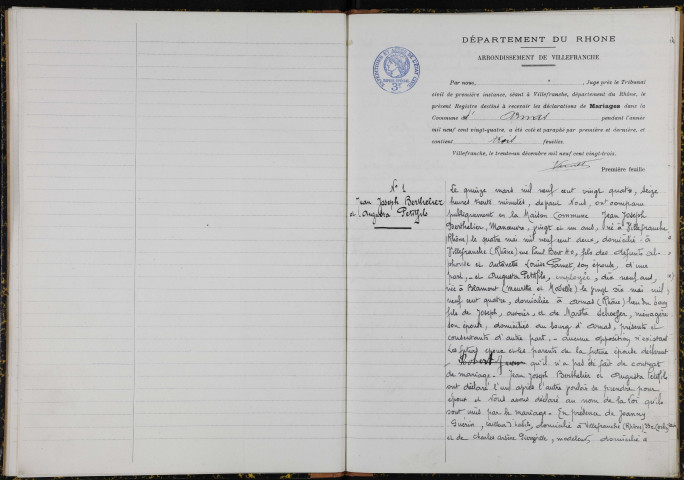 DÉPARTEMENT DU RHONE
ARRONDISSEMENT DE VILLEFRANCHE
Par nous, Juge près le Tribunal
civil de première instance, séant à Villefranche, département du Rhône, le
présent Registre destiné à recevoir les déclarations de Mariages dans la
Commune d'Arnas pendant l'année
mil neuf cent vingt-quatre, a été coté et paraphé par première et dernière, et
contient trois feuilles.
Villefranche, le trente-un décembre mil neuf cent vingt-trois.
Première feuille
N° 1
Jean Joseph Berthelier
et Augusta Petitfils
Le quinze mars mil neuf cent vingt quatre, seize
heures trente minutes, devant Nous, ont comparu
publiquement en la Maison Commune Jean Joseph
Berthelier, Manœuvre, vingt et un ans, né à Villefranche
(Rhône) le quatre mai mil neuf cent deux, domicilié à
Villefranche (Rhône) rue Paul Bert, fils des défunts Al-
phonse et Antoinette Louise son épouse, d'une
part, et Augusta Petitfils, employée, dix neuf ans,
née à Blamont (Meurthe et Moselle) le vingt six mai mil
neuf cent quatre, domiciliée à Arnas (Rhône) lieu du bourg
fille de Joseph, et de Marthe Schaefer, ménagère
son épouse, domiciliés au bourg d'Arnas, présents et
consentants d'autre part. - Aucune opposition n'existant
Les futurs époux et les parents de la future épouse déclarent
qu'il n'a pas été fait de contrat
de mariage. Jean Joseph Berthelier et Augusta Petitfils
ont déclaré l'un après l'autre vouloir se prendre pour
époux et Nous avons déclaré au nom de la loi qu'ils
sont unis par le mariage. - En présence de Jeanny
Guérin, tailleur d'habits, domicilié à Villefranche (Rhône)
et de Charles modeleur, domicilié à